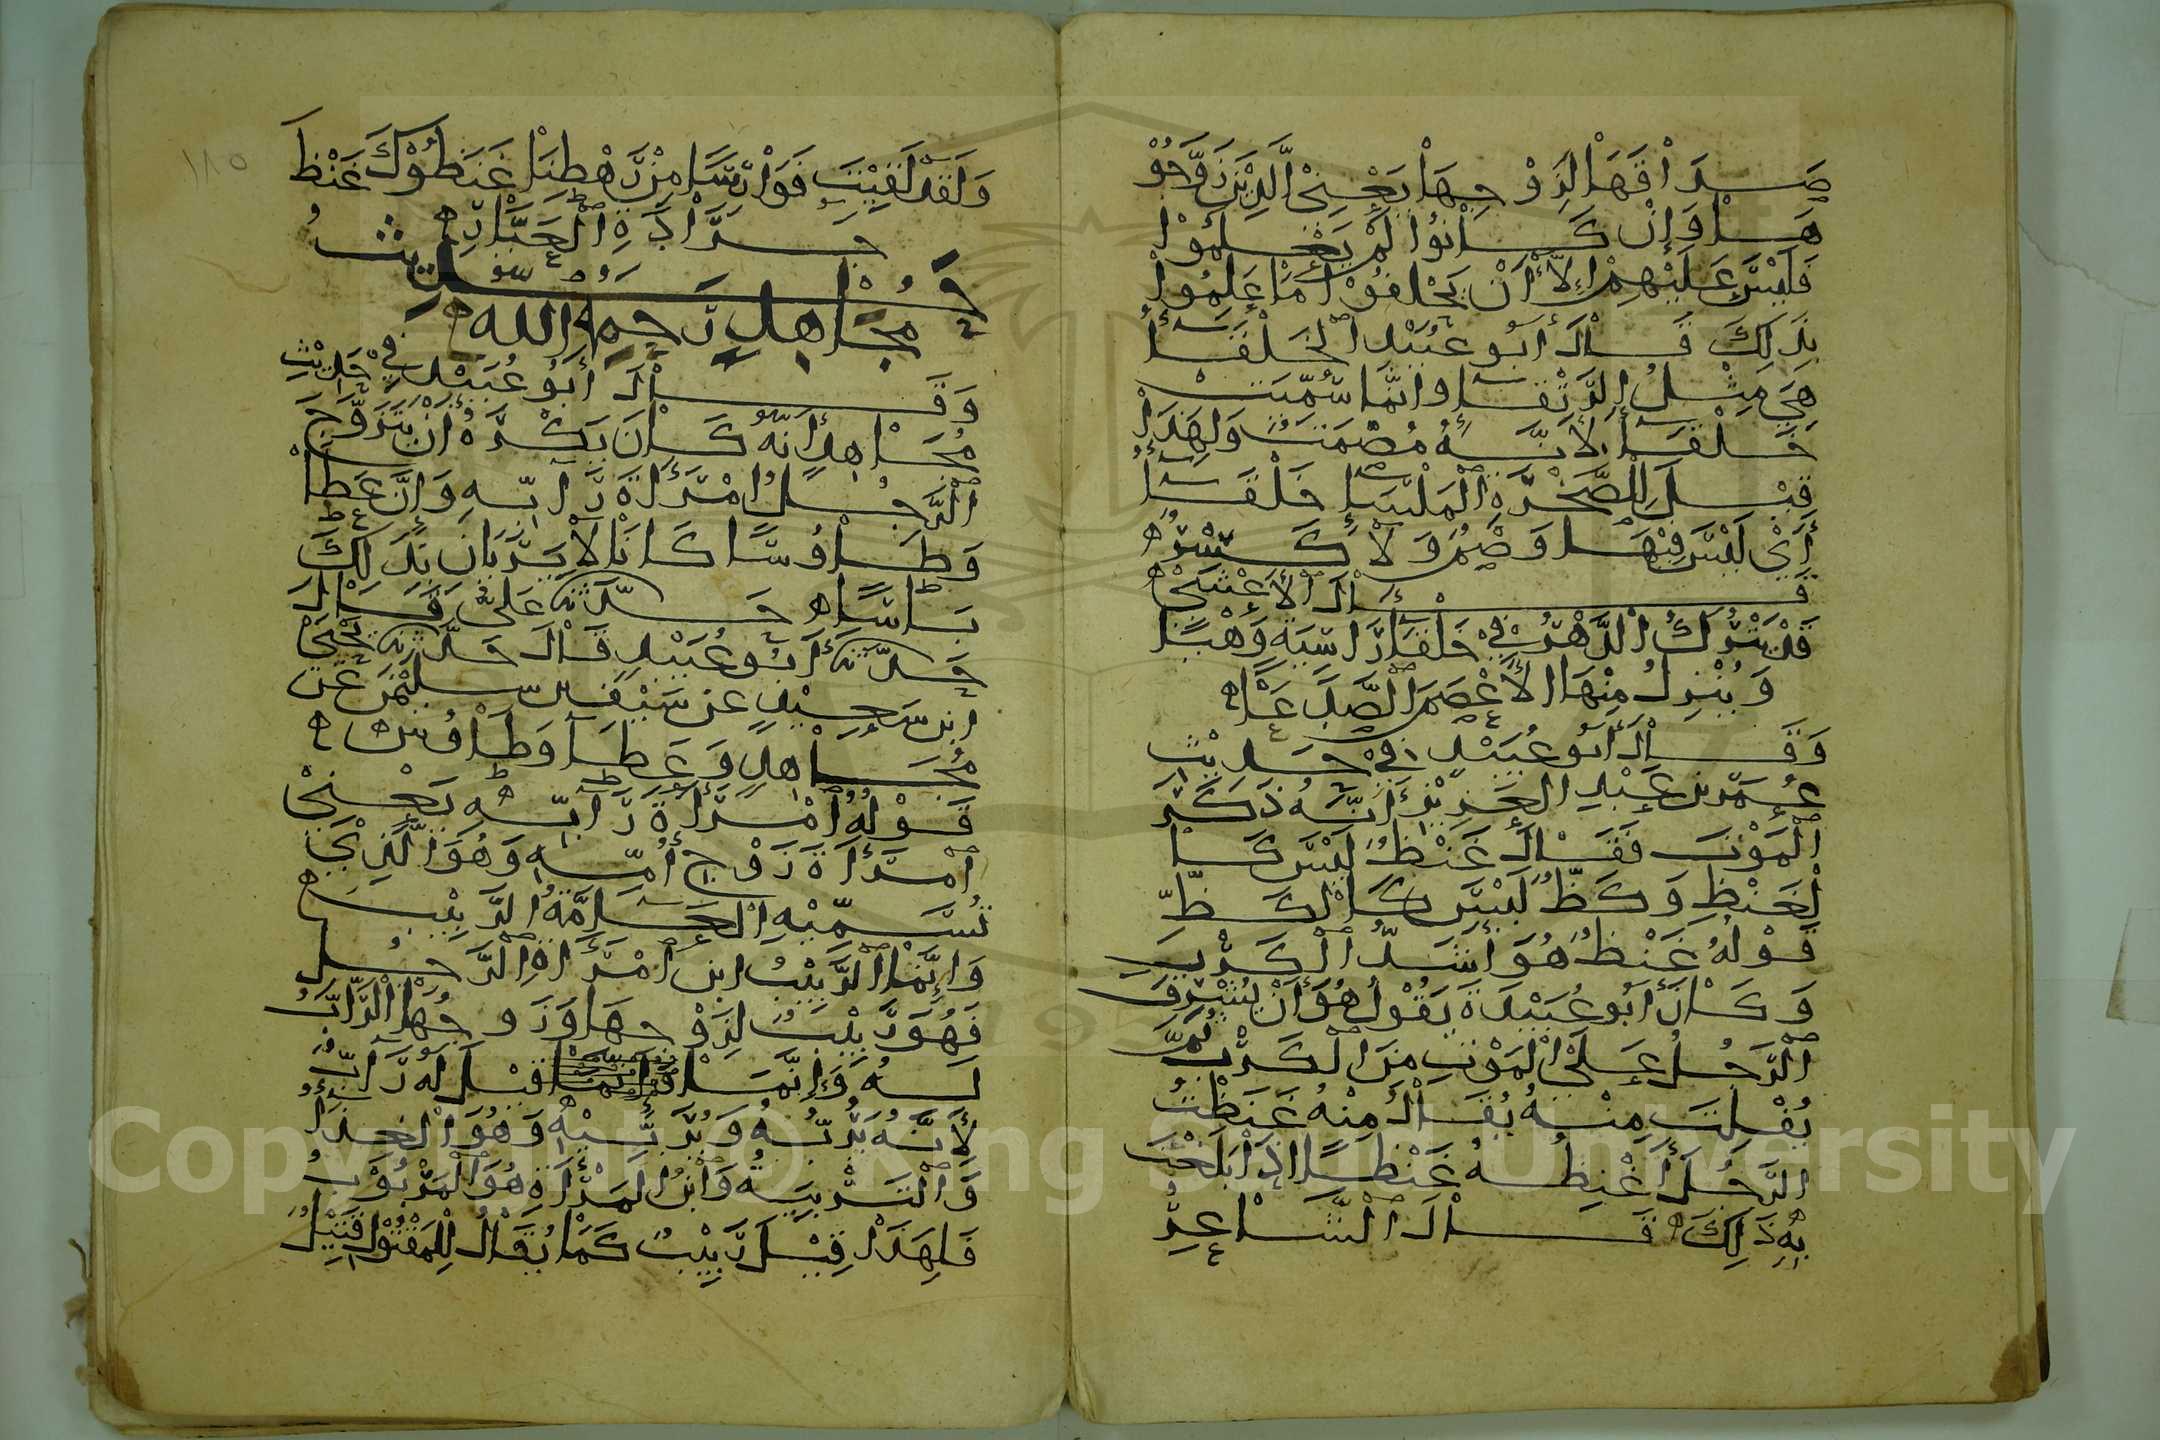 صَدَاقَهَا لِزَوْجِهَا يَعْنِي الَّذِيْنَ زَوَّجُوْ
هَا وَإِنْ كَانُوْا لَمْ يَعْلَمُوْا
فَلَيْسَ عَلَيْهِمْ إِلَّا أَنْ يَحْلِفُوْا مَا عَلِمُوْا
بِذَلِكَ قَالَ أَبُو عُبَيْدٍ الْخَلْقَاءُ
هِيَ مِثْلُ الرَّتْقَاءِ وَإِنَّمَا سُمِّيَتْ
خَلْقَاءَ لِأَنَّهُ مُصْمَتٌ وَلِهَذَا
قِيْلَ لِلصَّخْرَةِ الْمَلْسَاءِ خَلْقَاءُ
أَيْ لَيْسَ فِيْهَا وَصْمٌ وَلَا كَسْرٌ ه
قَالَ الْأَعْشَى ه
قَدْ يَتْرُكُ الدَّهْرُ فِيْ خَلْقَاءَ رَاسِيَةٍ وَهْيًا
وَيُنْزِلُ مِنْهَا الْأَعْصَمَ الصَّدَعَا ه
وَقَالَ أَبُو عُبَيْدٍ فِيْ حَدِيْثِ
عُمَرَ بْنِ عَبْدِ الْعَزِيْزِ أَنَّهُ ذَكَرَ
الْمَوْتَ فَقَالَ غَنْظٌ لَيْسَ كَا
لْغَنْظِ وَكَظٌّ لَيْسَ كَالْكَظِّ
قَوْلُهُ غَنْظٌ هُوَ أَشَدُّ الْكَرْبِ
وَكَانَ أَبُو عُبَيْدَةَ يَقُوْلُ هُوَ أَنْ يُشْرِفَ
الرَّجُلُ عَلَى الْمَوْتِ مِنَ الْكَرْبِ ثُمَّ
يُفْلِتَ مِنْهُ يُقَالُ مِنْهُ غَنَظْتُ
الرَّجُلَ أَغْنِظُهُ غَنْظًا إِذَا بَلَغْتَ
بِهِ ذَلِكَ ه قَالَ الشَّاعِرُ
وَلَقَدْ لَقِيْتَ فَوَارِسًا مِنْ رَهْطِنَا غَنَظُوْكَ غَنْظَ
جَرَادَةِ الْعَيَّارِ ه
حَدِيثُ
مُجَاهِدٍ رَحِمَهُ اللَّهُ ه
وَقَالَ أَبُو عُبَيْدٍ فِيْ حَدِيْثِ
مُجَاهِدٍ أَنَّهُ كَانَ يَكْرَهُ أَنْ يَتَزَوَّجَ
الرَّجُلُ امْرَأَةَ رَابِّهِ وَإِنَّ عَطَاءً
وَطَاوُسًا كَانَا لَا يَرَيَانِ بِذَلِكَ
بَأْسًا ه حَدَّثَنَا عَلِيٌّ قَالَ
حَدَّثَنَا أَبُو عُبَيْدٍ قَالَ حَدَّثَنَا يَحْيَى
ابْنُ سَعِيْدٍ عَنْ سَيْفِ بْنِ سُلَيْمَنَ عَنْ
مُجَاهِدٍ وَعَطَاءٍ وَطَاوُسٍ ه
قَوْلُهُ امْرَأَةَ رَابِّهِ يَعْنِيْ
امْرَأَةَ زَوْجِ أُمِّهِ وَهُوَ الَّذِيْ
تُسَمِّيْهِ الْعَامَّةُ الرَّبِيْبَ ه
وَإِنَّمَا الرَّبِيْبُ ابْنُ امْرَأَةِ الرَّجُلِ
فَهُوَ رَبِيْبٌ لِزَوْجِهَا وَزَوْجُهَا الرَّابُّ
لَهُ وَإِنَّمَا قِيْلَ لَهُ رَابٌّ
لِأَنَّهُ يَرُبُّهُ وَيُرَبِّيْهِ وَهُوَ الْغِذَاءُ
وَالتَّرْبِيَةُ وَابْنُ الْمَرْأَةِ هُوَ الْمَرْبُوْبُ
فَلِهَذَا قِيْلَ رَبِيْبٌ كَمَا يُقَالُ لِلْمَقْتُوْلِ قَتِيْلٌ
١٨٥
Copyright © King Saud University